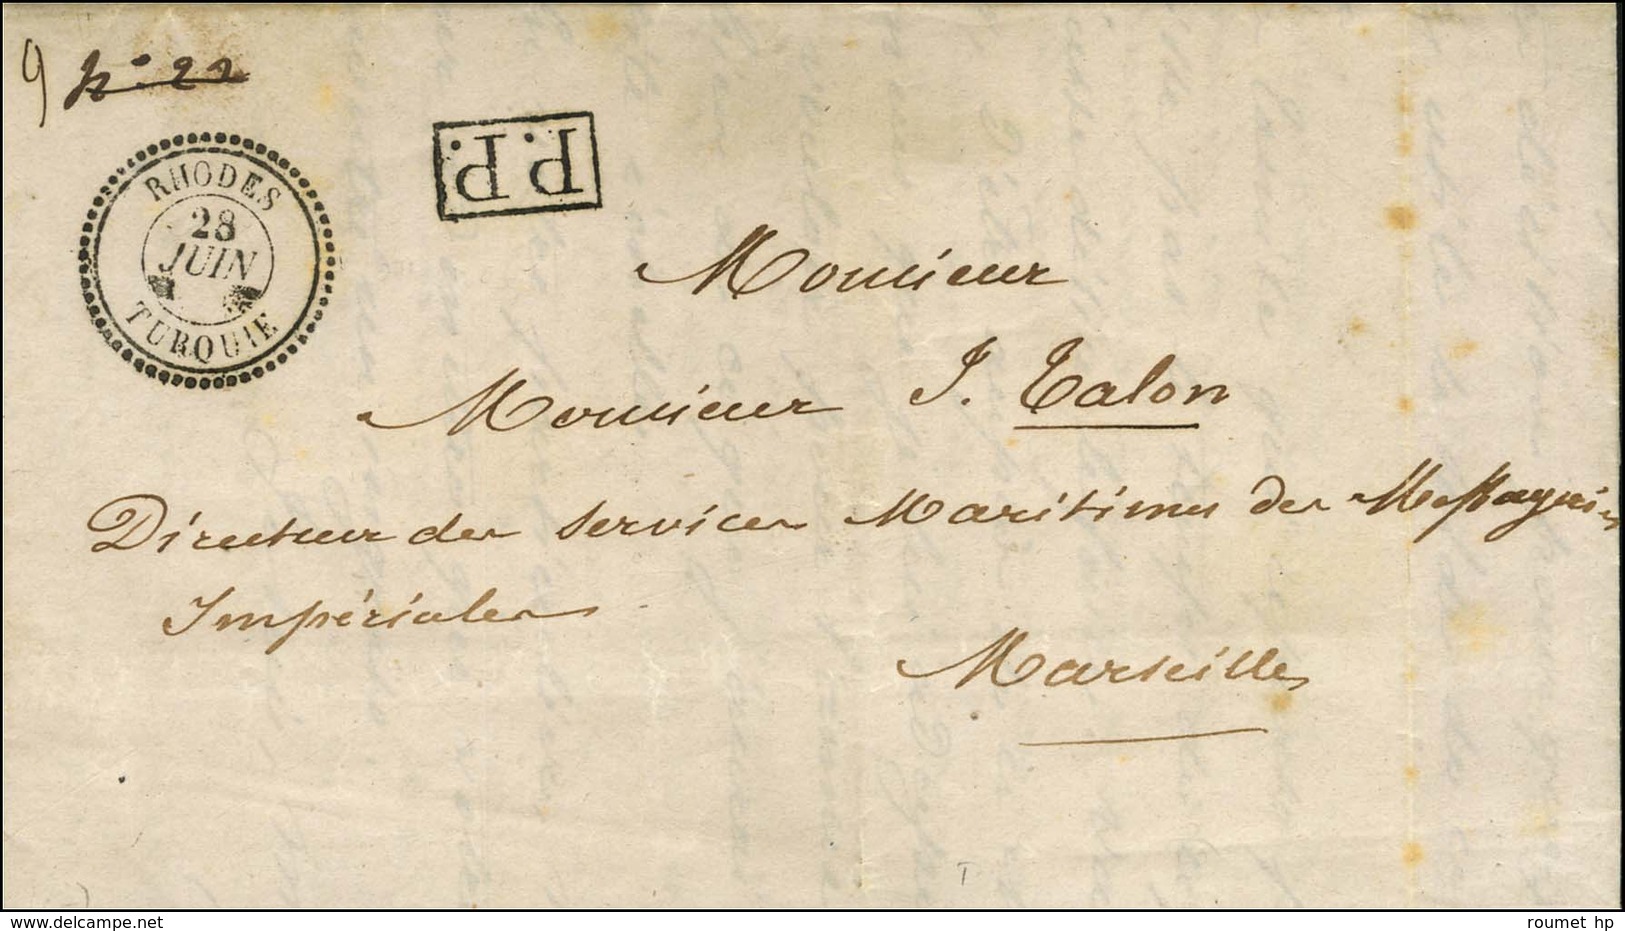 9 N° 22
RHODES
28
JUIN
TURQUIE
P.P.
Monsieur
Monsieur J. Talon
Directeur des Services Maritimes des Messageries
Impériales
Marseille
roumet hp